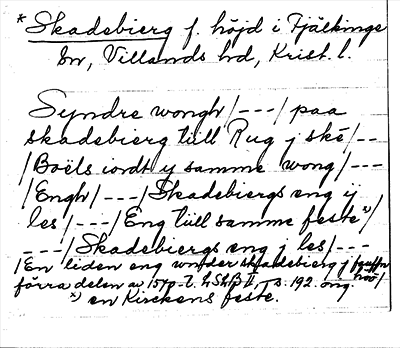 * Skadebierg f. höjd i Fjälkinge
sn, Villands hd, Krist. l.
Syndre wongh /---/ paa
skadebierg tiill Rug j ské /--
/ Boëls iordt y samme wong /---
/ Engh /---/ Skadebiergs eng ij
les /---/ Eng tiill samme feste x) /
---/ Skadebiergs eng j les /---
/ En liden eng wnder skadebierg j
förra delen av 1570-t. LShB II, s. 192.
x) en Kirckens feste.